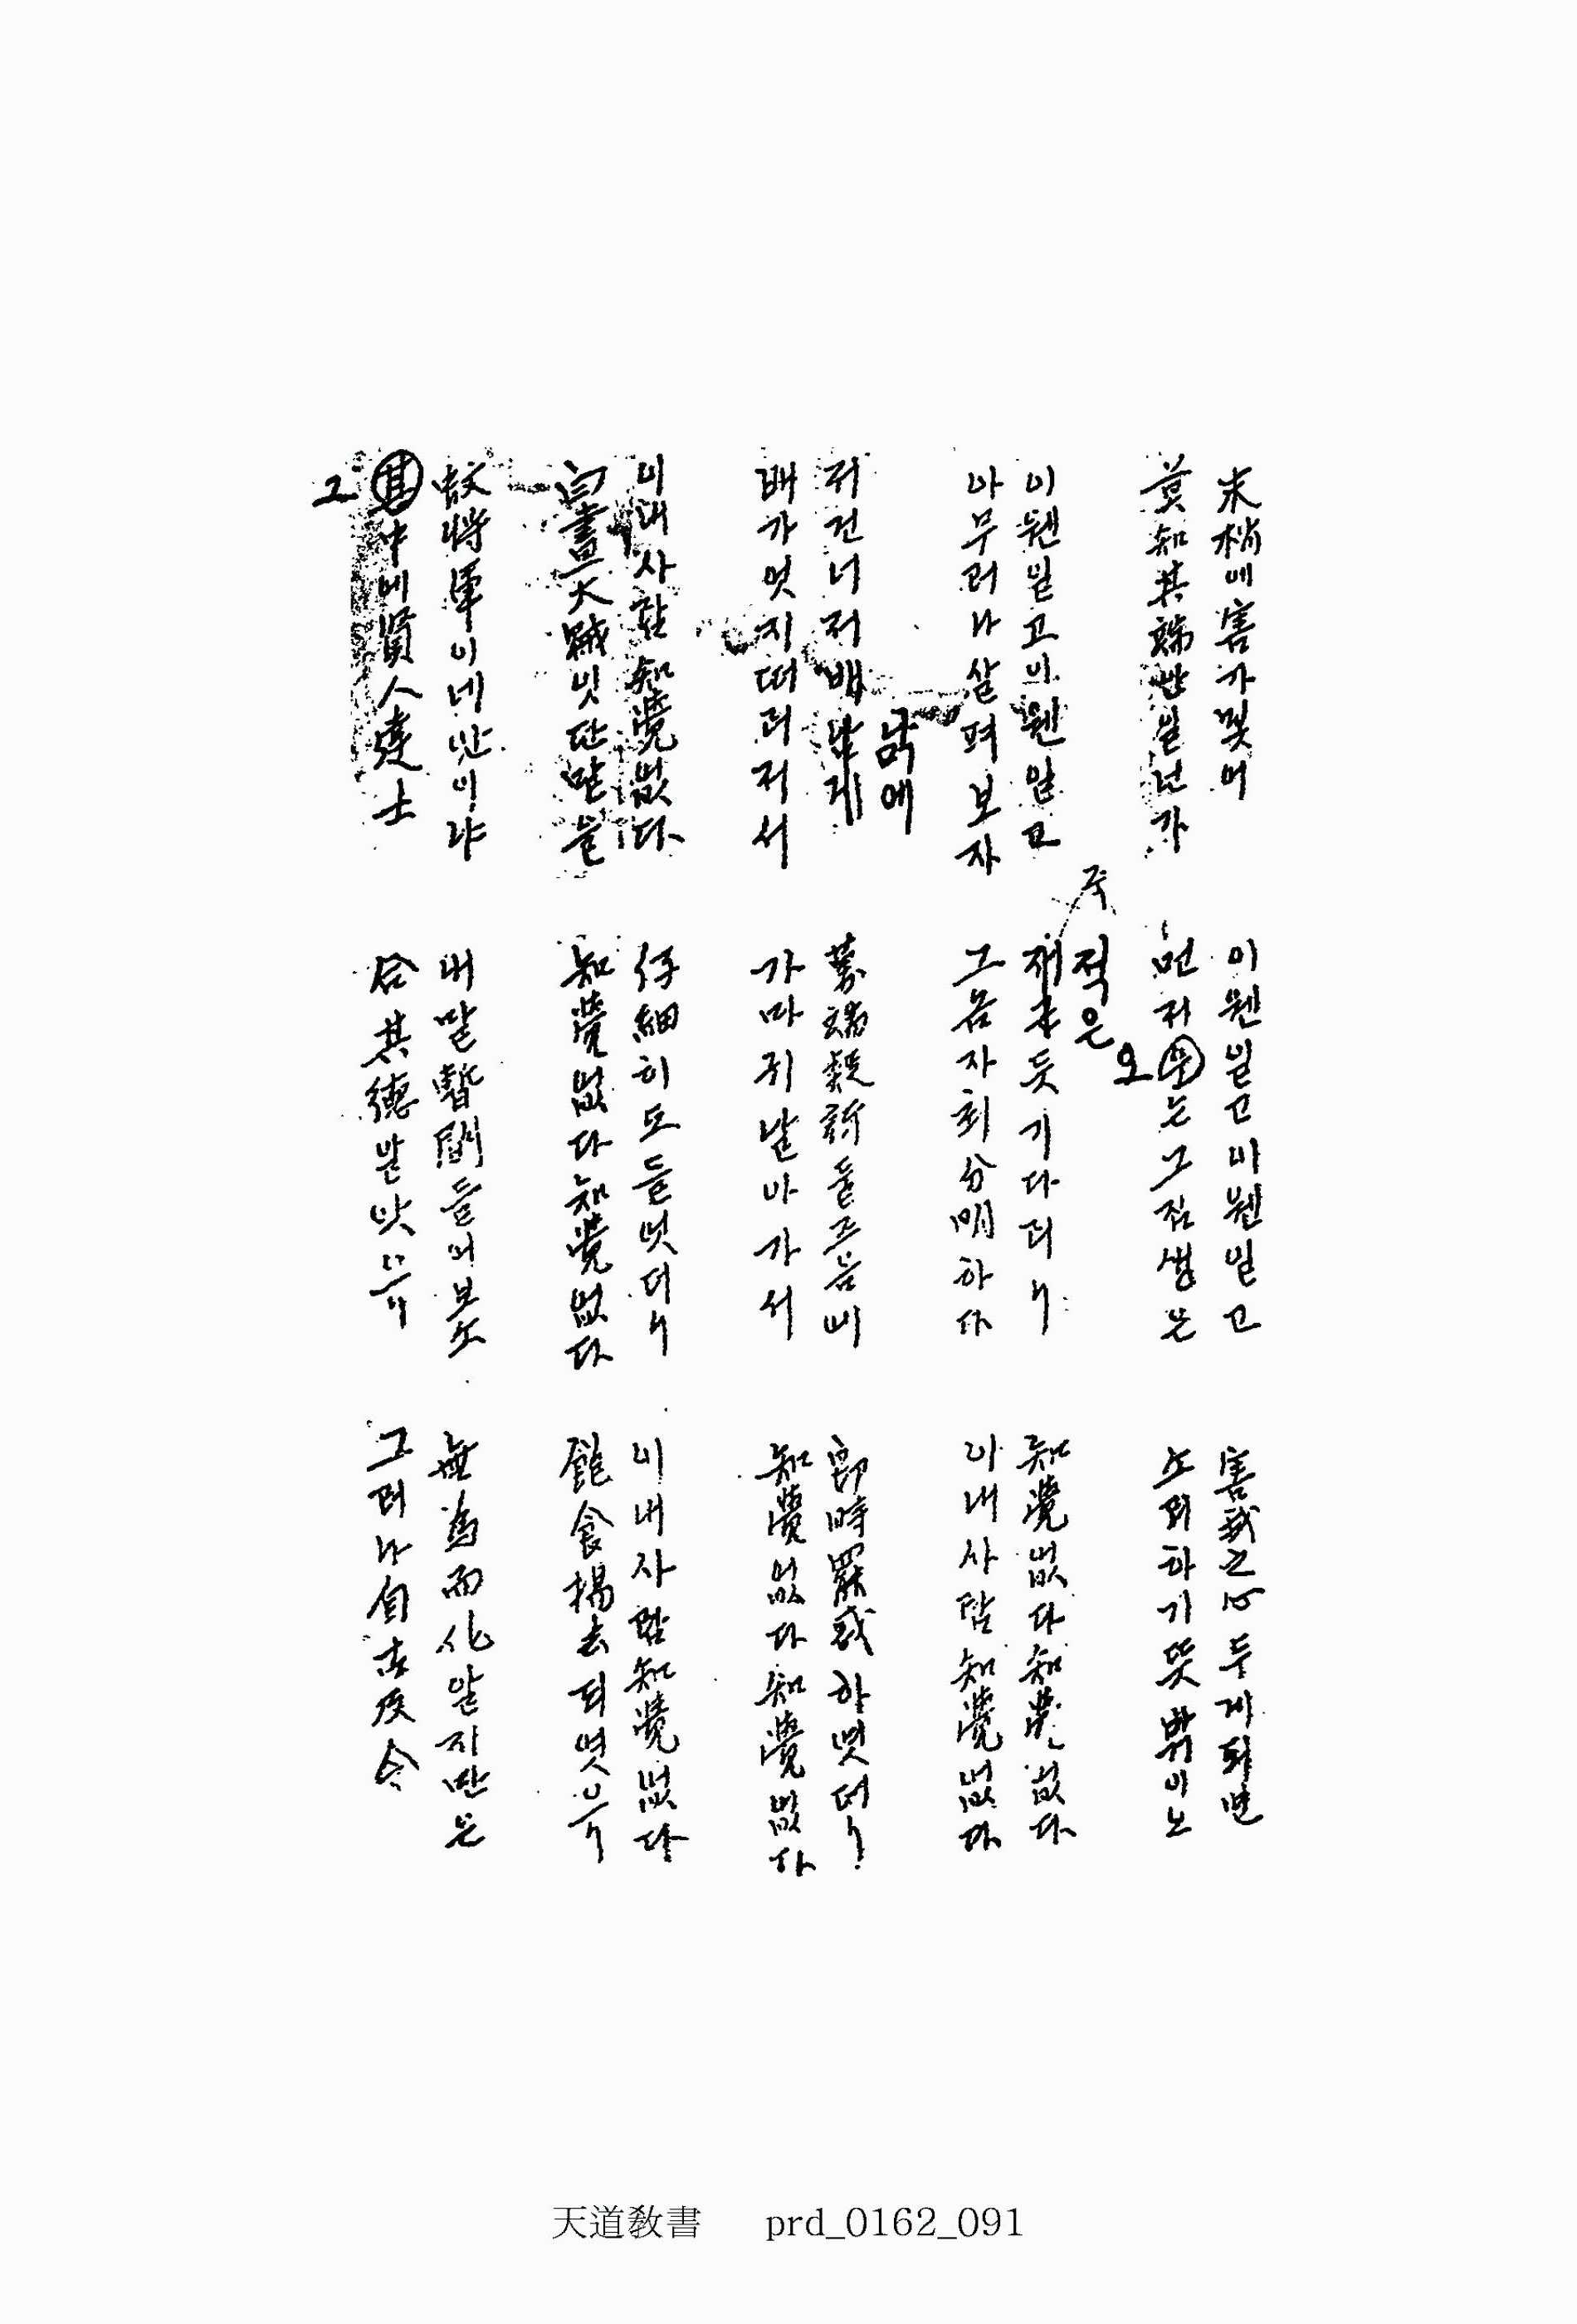 末梢에害가및어
莫知其端안일넌가
이웬일고이웬일고
먼저우는그짐생은
오
害我之心두게되면
소릐하기뜻밖이노
이웬일고이웬일고
아무러나살펴보자
적은
듯기다리니
그놈자최分明하다
知覺없다知覺없다
이내사람知覺없다
저건너저배나게
낡에
배가엇지떠러저서
萬端疑訝둘즈음에
가마귀날아가서
卽時罷惑하엿더니
知覺없다知覺없다
이내사람知覺없다
白晝大賊잇단말을
仔細히도들엇더니
知覺없다知覺없다
이내사람知覺없다
飽食楊去되엿으니
蚊將軍이네안이냐
其中에賢人達士
그
내말暫間들어보소
合其德알앗으니
無爲而化알지만은
그러나自古及今
天道敎書 prd_0162_091